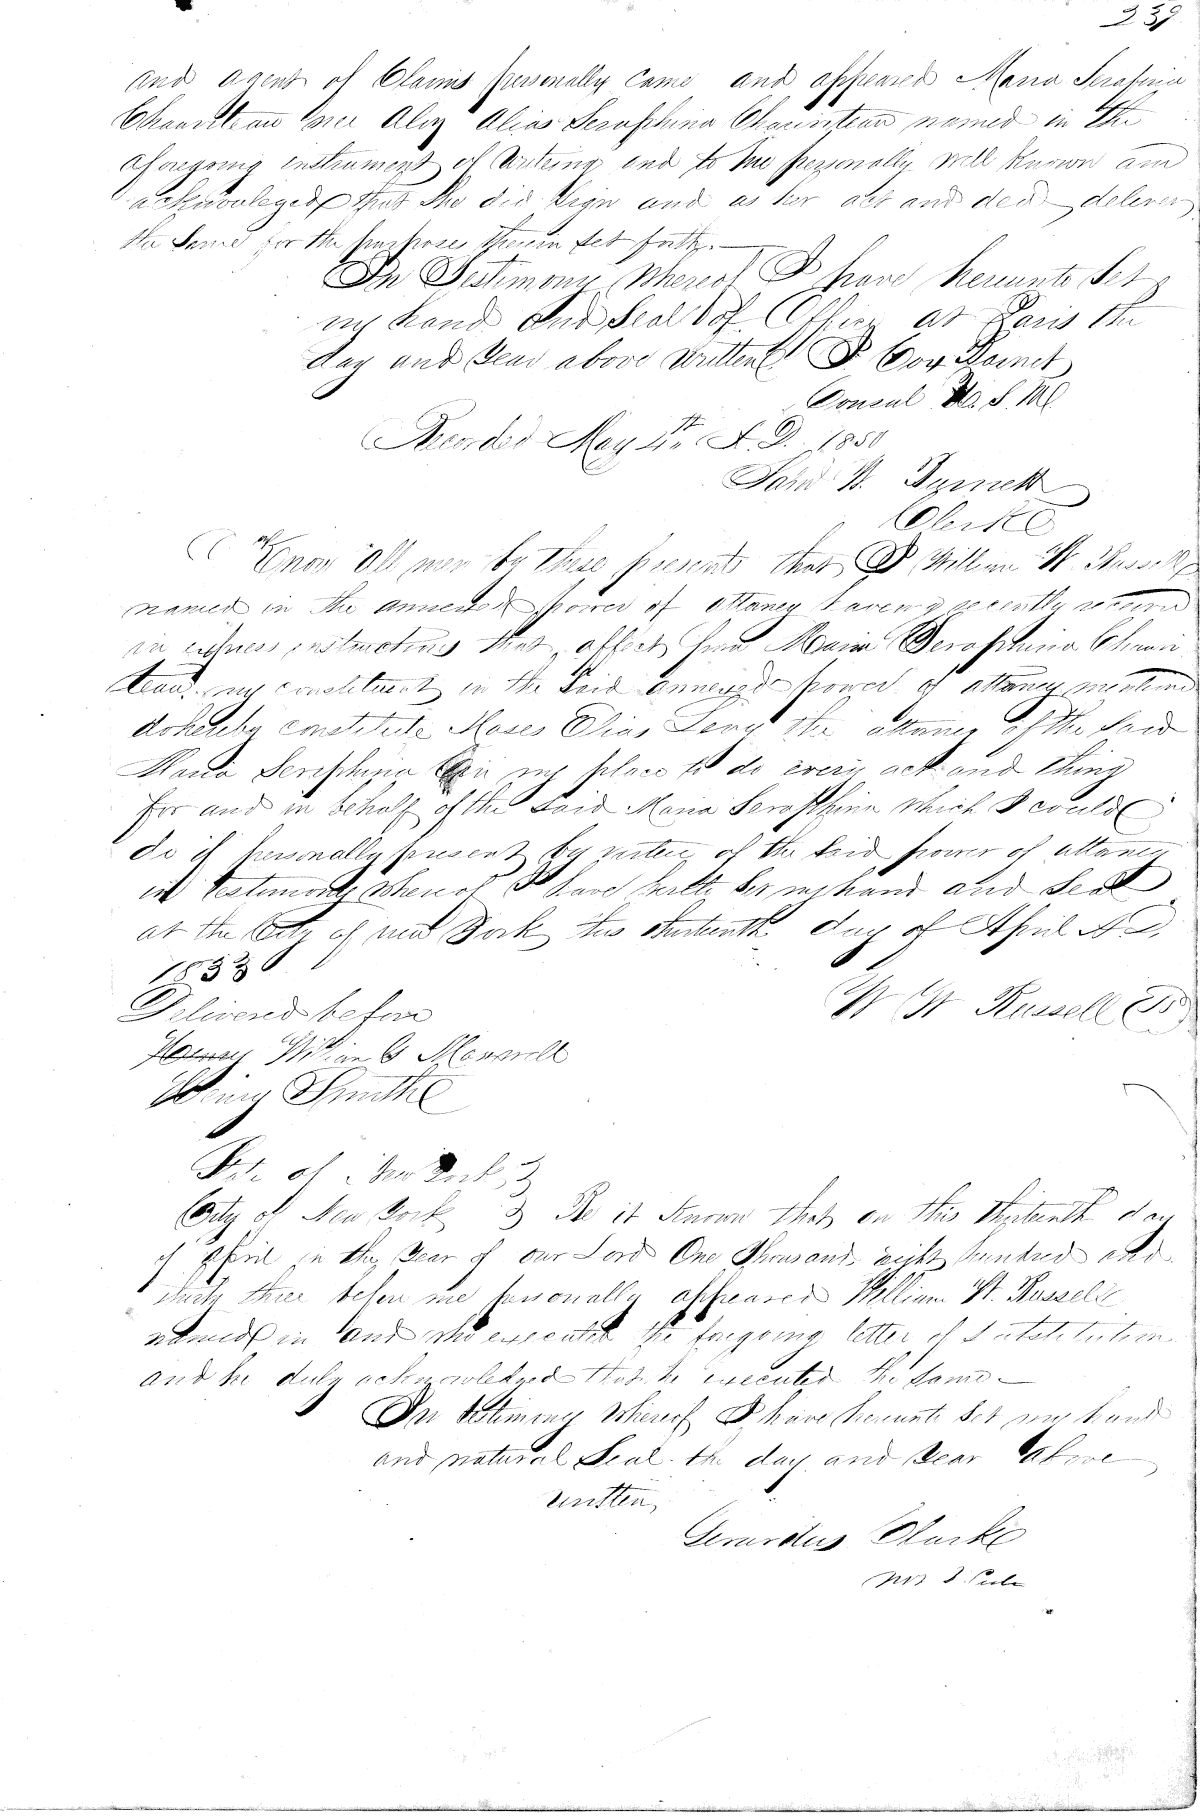 239
and agent of Claims personally came and appeared Maria Serafina
Chauviteau nee Aloy Alias Seraphina Chauviteau named in the
aforegoing instrument of writing and to me personally well known and
acknowleged that she did sign and as her act and deed deliver
the same for the purposes therein set forth.
In Testimony whereof I have hereunto Set
my hand and Seal of Office at Paris the
day and Year above written J. Cox Barnet
Consul U. S. A.
Recorded May 4th A. D. 1850
Saml W. Burnett
Clerk
Know all men by these presents that I William W. Russell
named in the annexed power of attaney having recently received
in express instructions that affect from Maria Seraphina Chauvi
teau my constituent in the said annexed power of attaney mentioned
do hereby constitute Moses Elias Levy the attaney of the said
Maria Seraphina in my place to do every act and thing
for and in behalf of the said Maria Seraphina which I could
do if personally present by virtue of the said power of attaney
in testimony whereof I have hereto set my hand and Seal
at the City of new York this thirteenth day of April A.D.
1833
Delivered before
W W Russell
Henry William G Maxwell
Henry Smith
State of New York
City of New York Be it Known that on this thirteenth day
of April in the Year of our Lord One Thousand eight hundred and
thirty three before me personally appeared William W. Russell
named in and who executed the foregoing letter of substitution
and he duly acknowledged that he executed the same
In testimony Whereof I have hereunto Set my hand
and natural Seal the day and Year above
written,
Gerardus Clark